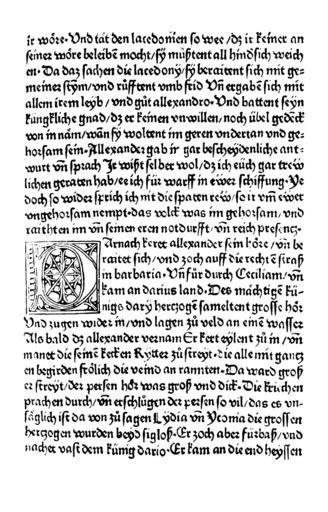 ir wöre · Und tät den lacedonien so wee / dz ir keiner an
seiner wöre beleiben mocht / sÿ müßtent all hindsich weich
en · Da daz sachen die lacedonÿ / sÿ beraitent sich mit ge-
meiner stÿm / vnd rüfftent vmb frid Vñ ergabēn sich mit
allem irem leÿb / vnd gůt allexandro · Vnd battent seÿn
küngkliche gnad / dz er keinen vnwillen / noch übel gedēck
von in näm / wān sÿ woltent im geren vndertan vnd ge-
horsam sein · Allexander gab ir gar bescheÿdenliche ant-
wurt vñ sprach Je wißt selbet wol / dz ich eüch gar trew
lichen geraten hab / ee ich für warff in ewer schiffung · Ye
doch so wider sprich ich mit die spaten rew / so ir vmͫ ewer
vngehorsam nempt · das volck was im gehorsam / vnd
raithten im vñ seinen eren notdurfft / vñ reich presencz ·
Darnach keret allexander sein höre / vñ be
raitet sich / vnd zoch auff die rechtē straß
in barbaria · Vñ für durch Ceciliam / vñ
kam an darius land · Des mächtigē kü-
nigs dary herczogē sameltent grosse hör
Vnd zugen wider in / vnd lagen zů veld an einē wasser
Als bald dz allexander vernam Er kert eylent zů in / vñ
manet die seinē keckē Rÿtter zů streyt · die alle mit gancz
en begirden frölich die veind an rannten · Da ward groß
er streyt / der persen hör was groß vnd dick · Die krichen
prachen durch / vñ erschlügen der persen so vil / das es vn-
säglich ist da von zů sagen Lydia vñ Yconia die grossen
herczogen wurden beyd sigloß · Er zoch aber fürbaß / vnd
nachet vast dem künig dario · Er kam an die end heyssen